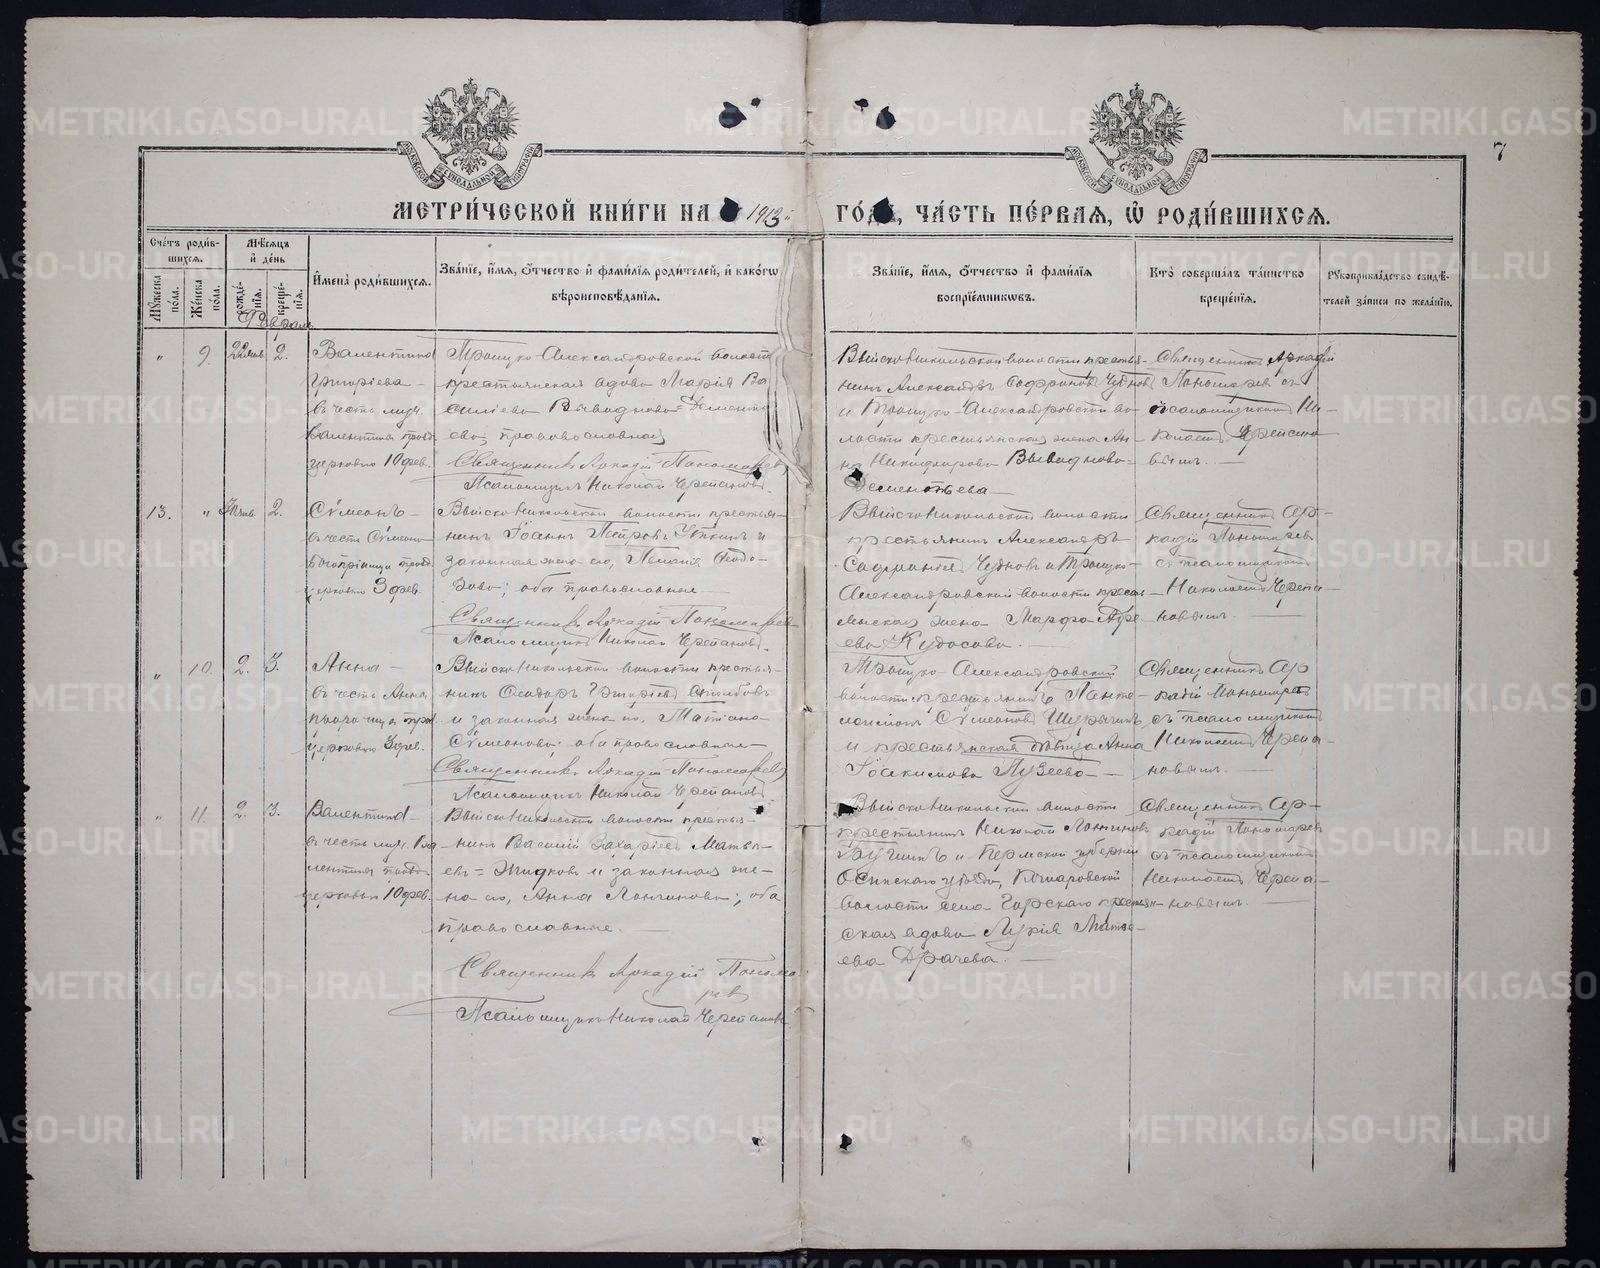 7
МЕТРИ́ЧЕСКОЙ КНИ́ГИ НА 1913 ГО́ДЪ, ЧА́СТЬ ПЕ́РВАЯ, Ѽ РОДИ́ВШИХСЯ.
Сче́тъ роди́в-
шихся.
Мꙋ́жеска по́ла.
Же́нска по́ла.
Мѣ́сяцъ и҆ де́нь
рожде́-
нїя.
креще́-
нїя.
И҆мена̀ роди́вшихся.
Зва́нїе, и҆́мя, ѻ҆́тчество и҆ фами́лїя роди́телей, и҆ како́гѡ
вѣроисповѣ́данїя.
Зва́нїе, и҆́мя, ѻ҆́тчество и҆ фами́лїя
воспрїе́мникѡвъ.
Кто̀ соверша́лъ та́инство
креще́нїя.
Рꙋкоприкла́дство свидѣ́-
телей за́писи по жела́нїю.
Февраль
" 9. 22 Янв. 2.
Валентина
Григоріева -
въ честь муч.
10 фев.
Троицко-Александровской волости
крестьянская вдова Марія Ва
силіева Выводново-Дементь
ева, православная
Священникъ Аркадій Пономаревъ
Псаломщикъ Николай Черепановъ.
Выйско-Никольской волости крестья-
нинъ Александръ Софроновъ Чудновъ
и Троицко-Александровской во-
лости крестьянская жена Ан-
на Никифорова Выводново-
Дементьева
Священникъ Аркадій
Пономаревъ съ
псаломщикомъ Ни-
колаемъ Черепано-
вымъ.
13. " Янв. 2.
Сѵмеонъ -
въ честь Сѵмеона
Богопріимца
3 фев.
Выйско-Никольской волости крестья-
нинъ Іоаннъ Петровъ и
законная жена его, Ѳеодо-
рова; оба православные
Священникъ Аркадій Пономаревъ
Псаломщикъ Николай Черепановъ.
Выйско-Никольской волости
крестьянинъ Александръ
Софроновъ Чудновъ и Троицко-
Александровской волости кресть-
янская жена Марфа
ева
Священникъ Ар-
кадій Пономаревъ
съ псаломщикомъ
Николаемъ Черепа-
новымъ.
" 10. 2. 3.
Анна -
въ честь Анны
пророчицы
церковью 3 фев.
Выйско-Никольской волости крестья-
нинъ Ѳеодоръ Григоріевъ
и законная жена его, Татіана
Сѵмеонова; оба православные
Священникъ Аркадій Пономаревъ
Псаломщикъ Николай Черепановъ
Троицко-Александровской
волости крестьянинъ Панте-
леимонъ Сѵмеоновъ
и крестьянская дѣвица Анна
Іоакимова Пузеева
Священникъ Ар
кадій Пономаревъ
съ псаломщикомъ
Николаемъ Черепа-
новымъ.
" 11. 2. 3.
Валентина -
въ честь муч. Ва
лентины
церковью 10 фев.
Выйско-Никольской волости крестья-
нинъ Василій Захаріевъ Матвѣ-
евъ-Жидковъ и законная же-
на его, Анна Лонгинова; оба
православные.
Священникъ Аркадій Понома-
ревъ
Псаломщикъ Николай Черепановъ
Выйско-Никольской волости
крестьянинъ Николай Лонгиновъ
и Пермской губерніи
Осинскаго уѣзда,
волости села Горскаго крестьян-
ская вдова Лукія Матѳе-
ева Драчева.
Священникъ Ар-
кадій Пономаревъ
съ псаломщикомъ
Николаемъ Черепа-
новымъ.
METRIKI.GASO-URAL.RU